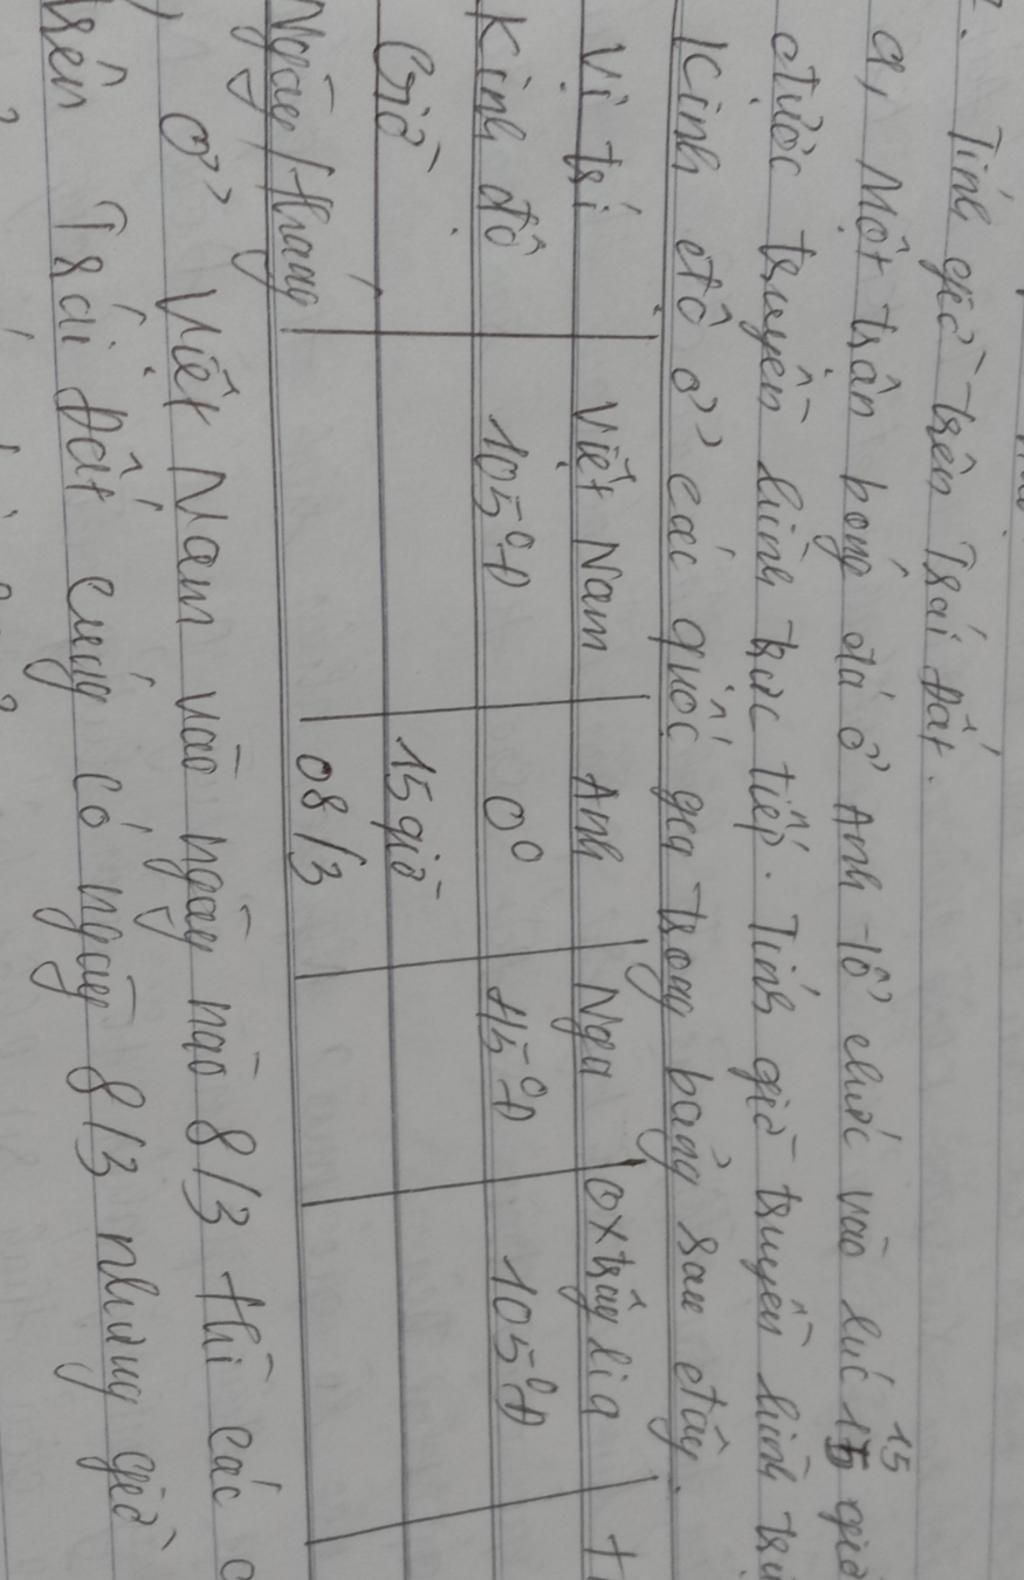 Tính giờ trên Trái Đất.
a, Một trận bóng đá ở Anh tổ chức vào lúc 15 giờ
được truyền hình trực tiếp. Tính giờ truyền hình
Kinh độ ở các quốc gia trong bảng sau đây.
Vị trí Việt Nam Anh Nga Oxtrâylia
Kinh độ 105°Đ 0° 45°Đ 105°Đ
Giờ 15 giờ
Ngày/tháng 08/3
Ở Việt Nam vào ngày nào 8/3 thì các
trên Trái Đất cũng có ngày 8/3 nhưng giờ